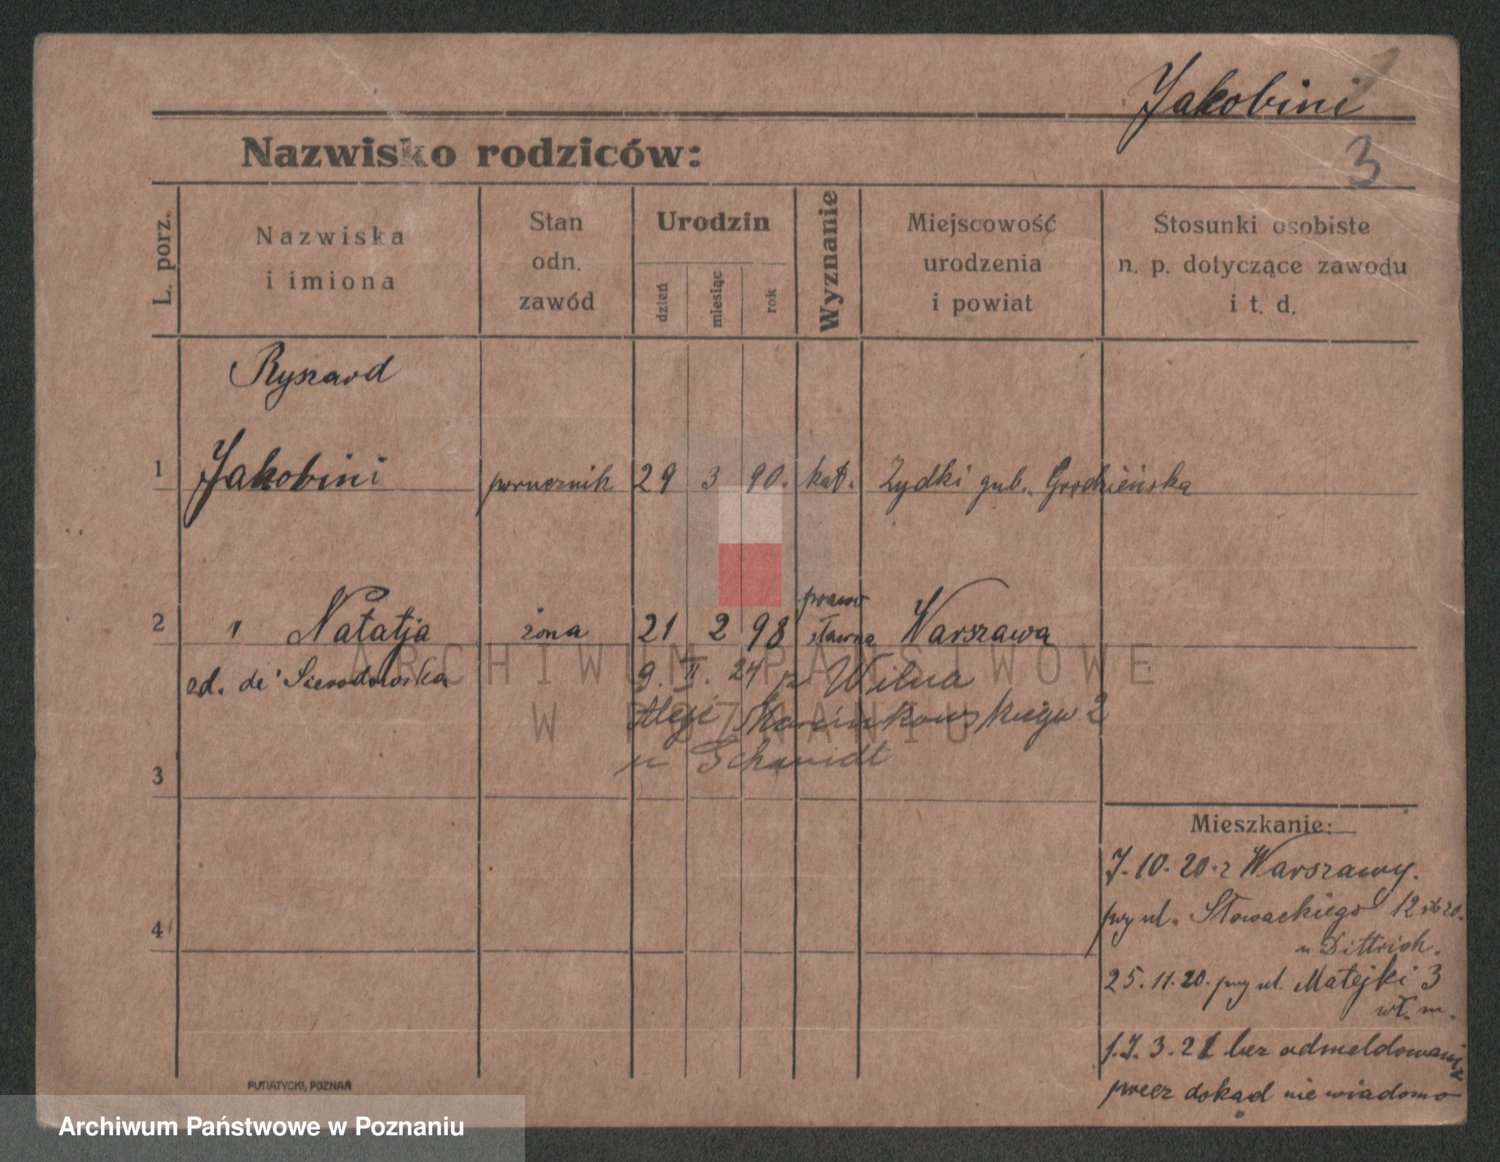 Jakobini
3
Nazwisko rodziców:
L. porz.
Nazwiska
i imiona
Stan
odn.
zawód
Urodzin
dzień
miesiąc
rok
Wyznanie
Miejscowość
urodzenia
i powiat
Stosunki osobiste
n. p. dotyczące zawodu
i t. d.
Ryszard
1 Jakobini porucznik 29 3 90. kat. Zydki gub. Grodzieńska
2 " Natatja żona 21 2 98 prawo
sławna Warszawa
9. II. 24 z Wilna
Aleje Marcinkowskiego 2
u Schmidt
3
4
Mieszkanie:
7.10.20. z Warszawy.
przy ul. Słowackiego 12
u Dittrich.
25.11.20. przy ul. Matejki 3
wł. m.
3.21 bez odmeldowania
precz dokąd nie wiadomo
PUTIATYCKI, POZNAŃ
ARCHIWUM PAŃSTWOWE
W POZNANIU
Archiwum Państwowe w Poznaniu